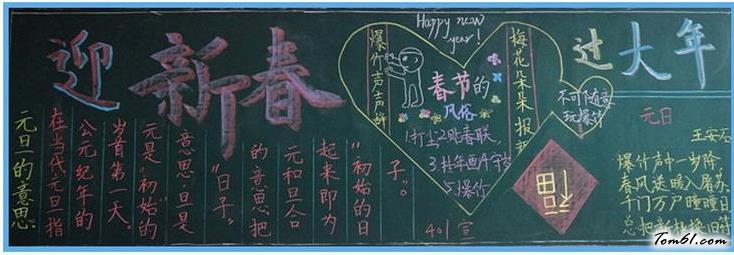 迎新春
元旦的意思
在当代元旦指
公元纪年的
岁首第一天。
元是"初始的
意思,旦是
"日子"
的意思.把
元和旦合
起来即为
"初始的日
子"。
401宣
Happy new
year!
爆竹声声辞
梅花朵朵报
春节的
风俗
1扫尘2贴春联,
3.挂年画4守岁
5爆竹
不可随意
玩爆竹
福
过大年
元日
王安石
爆竹声中一岁除
春风送暖入屠苏
千门万户曈曈日
总把新桃换旧符
Tom61.com